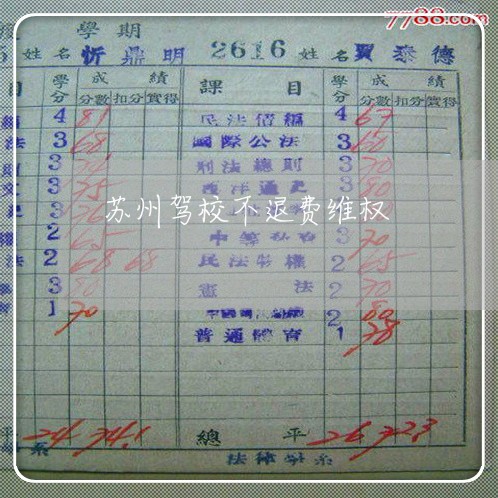 7788.com
學期
姓名 忻鼎明 2616 姓名 賈泰德
目 學分 成績 課目 學分 成績
分數 扣分 實得 分數 扣分 實得
4 81 民法債編 4 67
法 3 68 國際公法 3 60
3 刑法總則 3 70
3 75 西洋通史 3 80
3
苏州驾校不退费维权
2 65 3 70
法 2 68 68 民法物權 2 65
3 80 憲法 2 70
1 70 2 80
普通體育 1 78
平 24 總平 26
系 法律學系